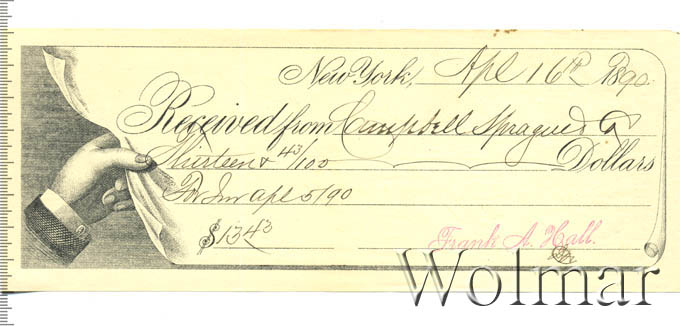 New York, Apl 16th 1890
Received from Campbell Sprague & Co
Thirteen & 43/100 Dollars
For Inv apl 5/90
$13 43
Frank A. Hall.
Wolmar